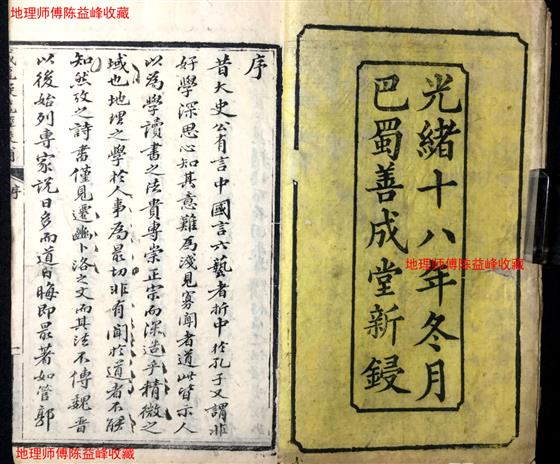 地理师傅陈益峰收藏
光緒十八年冬月
巴蜀善成堂新鋟
地理师傅陈益峰收藏
序
昔大史公有言中國言六藝者折中於孔子又謂非
好學深思心知其意難為淺見寡聞者道此皆示人
以為學讀書之法貴專崇正宗而深造乎精微之
域也地理之學於人事為最切非有聞於道者不能
知然攷之詩書僅見遷豳卜洛之文而其法不傳魏晉
以後始列專家說日多而道日晦即最著如管郭
序
地理师傅陈益峰收藏